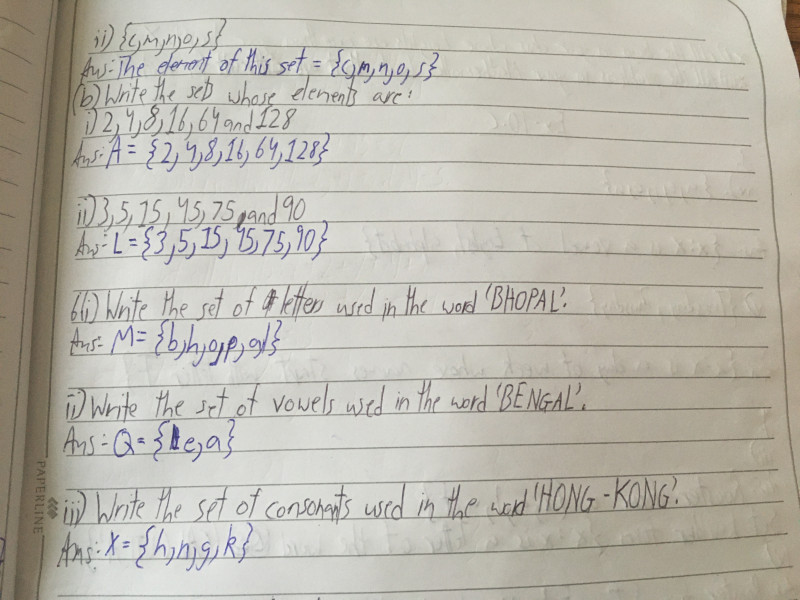 ii) {c,m,n,o,s}
Ans:- The element of this set = {c,m,n,o,s}
(b) Write the sets whose elements are:
i) 2,4,8,16,64 and 128
Ans:- A = {2,4,8,16,64,128}
ii) 3,5,15,45,75, and 90
Ans:- L = {3,5,15,45,75,90}
6(i) Write the set of letters used in the word 'BHOPAL'.
Ans:- M = {b,h,o,p,a,l}
ii) Write the set of vowels used in the word 'BENGAL'.
Ans:- Q = {e,a}
iii) Write the set of consonants used in the word 'HONG-KONG'.
Ans:- X = {h,n,g,k}
PAPERLINE